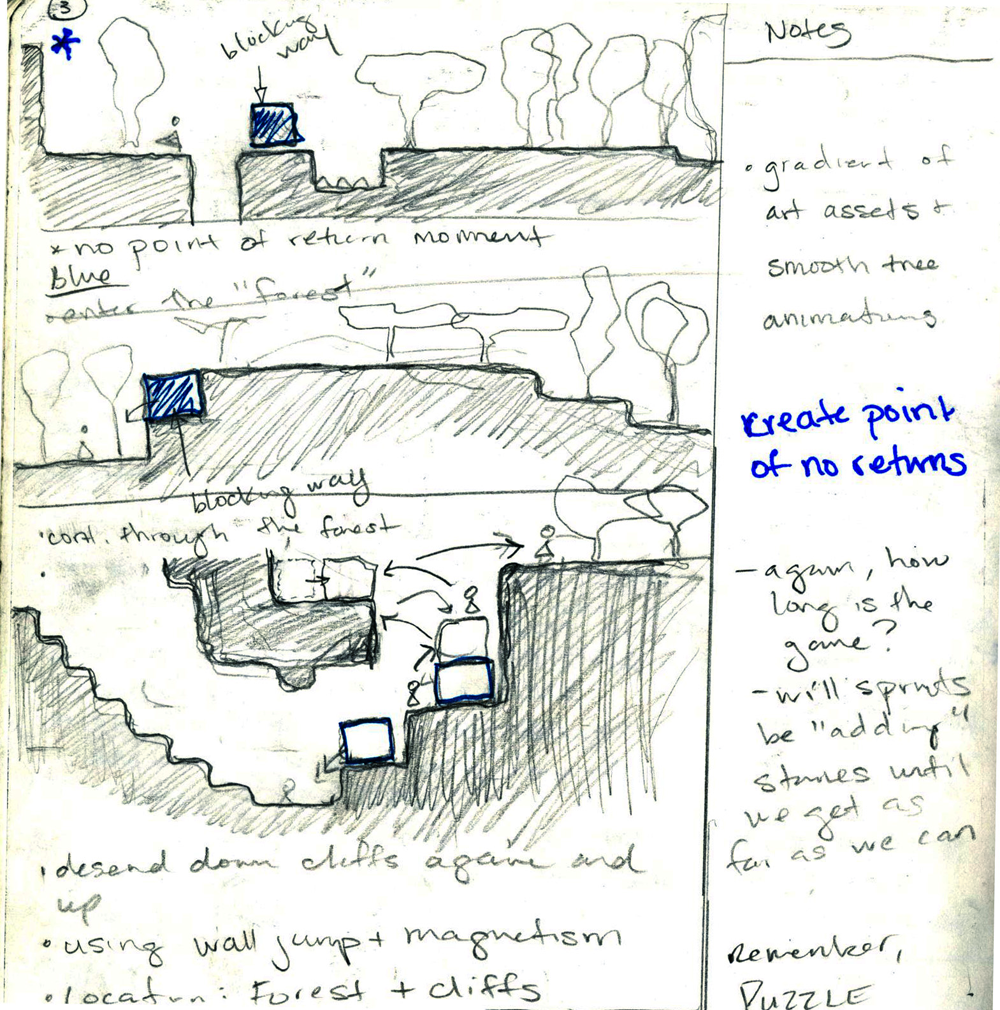 3
*
blocking
way
* no point of return moment
blue
• enter the "forest"
blocking way
• cont. through the forest
• desend down cliffs again and
up
• using wall jump + magnetism
• location: Forest + cliffs
Notes
• gradient of
art assets +
smooth tree
animations
create point
of no returns
- again, how
long is the
game?
- will sprints
be "adding"
stories until
we get as
far as we can
Remember,
PUZZLE